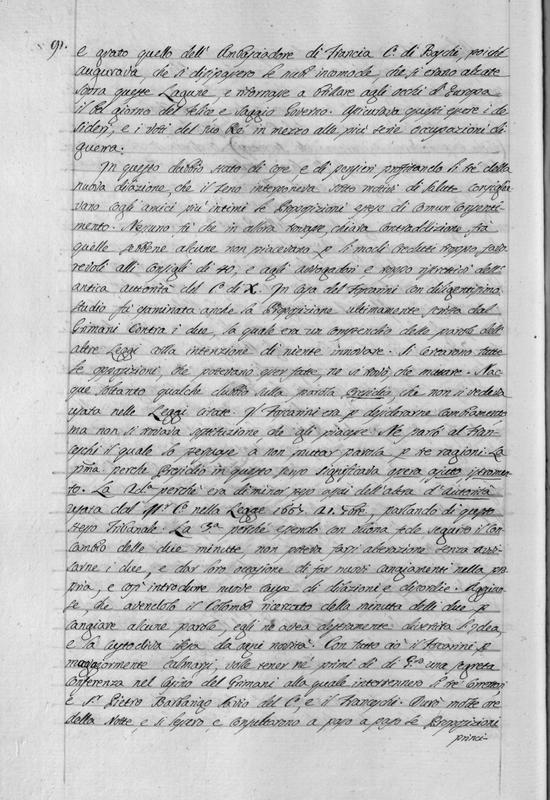 91.
e grato quello dell' Ambasciadore di Francia C. di Baschi, poiché
augurava, che si dissipassero le nubi incomode, che si erano alzate
sopra queste Lagune, e ritornasse a brillare agli occhi d'Europa
il bel giorno del felice e saggio Governo. Assicurava questi essere i de-
siderj, e i voti del suo Re in mezzo alle più serie occupazioni di
guerra.
In questo dubbio stato di cose e di pensieri profittando li tre della
nuova dilazione, che il Zeno interponeva sotto motivi di salute consiglia-
vano cogli amici più intimi le Proposizioni estese di comun consenti-
mento. Nessuno fù che in allora trovasse chiara contraddizione frà
quelle, sebbene alcune non piacevano p li modi creduti troppo favo-
revoli alli Consigli di 40, e agli avvogadori e troppo ristrettivi dell'
antica autorità del C. di X. In Casa del Foscarini con diligentissimo
studio fù esaminata anche la Proposizione ultimamente scritta dal
Grimani contra i due, la quale era un compendio delle parole dell'
altre Leggi colla intenzione di niente innovare. Si cercarono tutte
le opposizioni, che potevano esser fatte, ne si trovò che mutare. Nac-
que soltanto qualche dubbio sulla parola Presidio, che non si vedeva
usata nelle Leggi citate. Il Foscarini era p desiderarne cambiamento,
ma non si trovava sostituzione, che gli piacesse. Ne parlò al Fran-
ceschi il quale lo persuase a non mutar parola p tre ragioni. La
pma. perche Presidio in questo senso significava opera ajuto, istrumen-
to. La 2da. perchè era di minor peso assai dell'altra d'Autorità
usata dal M. C. nella Legge 1667 21. 7bre. parlando di questo
stesso Tribunale. La 3a. perché essendo con buona fede seguito il con-
cambio delle due minute, non poteva farsi alterazione senza avvi-
sarne i due, e dar loro occasione di far nuovi cangiamenti nella pro-
pria, e così introdurre nuove cause di dilazioni e discordie. Aggiun-
se che avendolo il Colombo ricercato della minuta delli due p
cangiare alcune parole, egli ne avea destramente divertita l'idea,
e la custodiva illesa da ogni novità. Con tutto ciò il Foscarini, p
maggiormente calmarsi, volle tener né primi dì di una segreta
Conferenza nel Casino del Grimani alla quale intervennero li tre Correttori
e Sr. Pietro Barbarigo Savio del C., e il Franceschi. Durò molte ore
della Notte, e si lessero e consultarono a passo a passo le Proposizioni
princi-